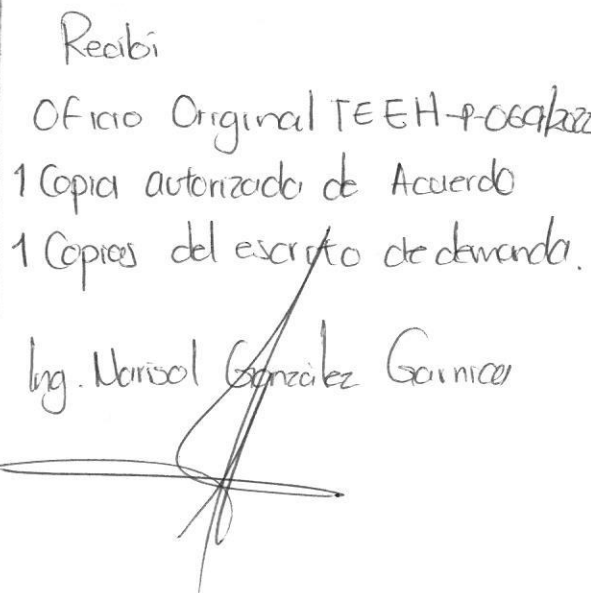 Recibi
Oficio Original TEEH-P-069/2022
1 Copia autorizada de Acuerdo
1 Copias del escrito de demanda.
Ing. Marisol González Garnica